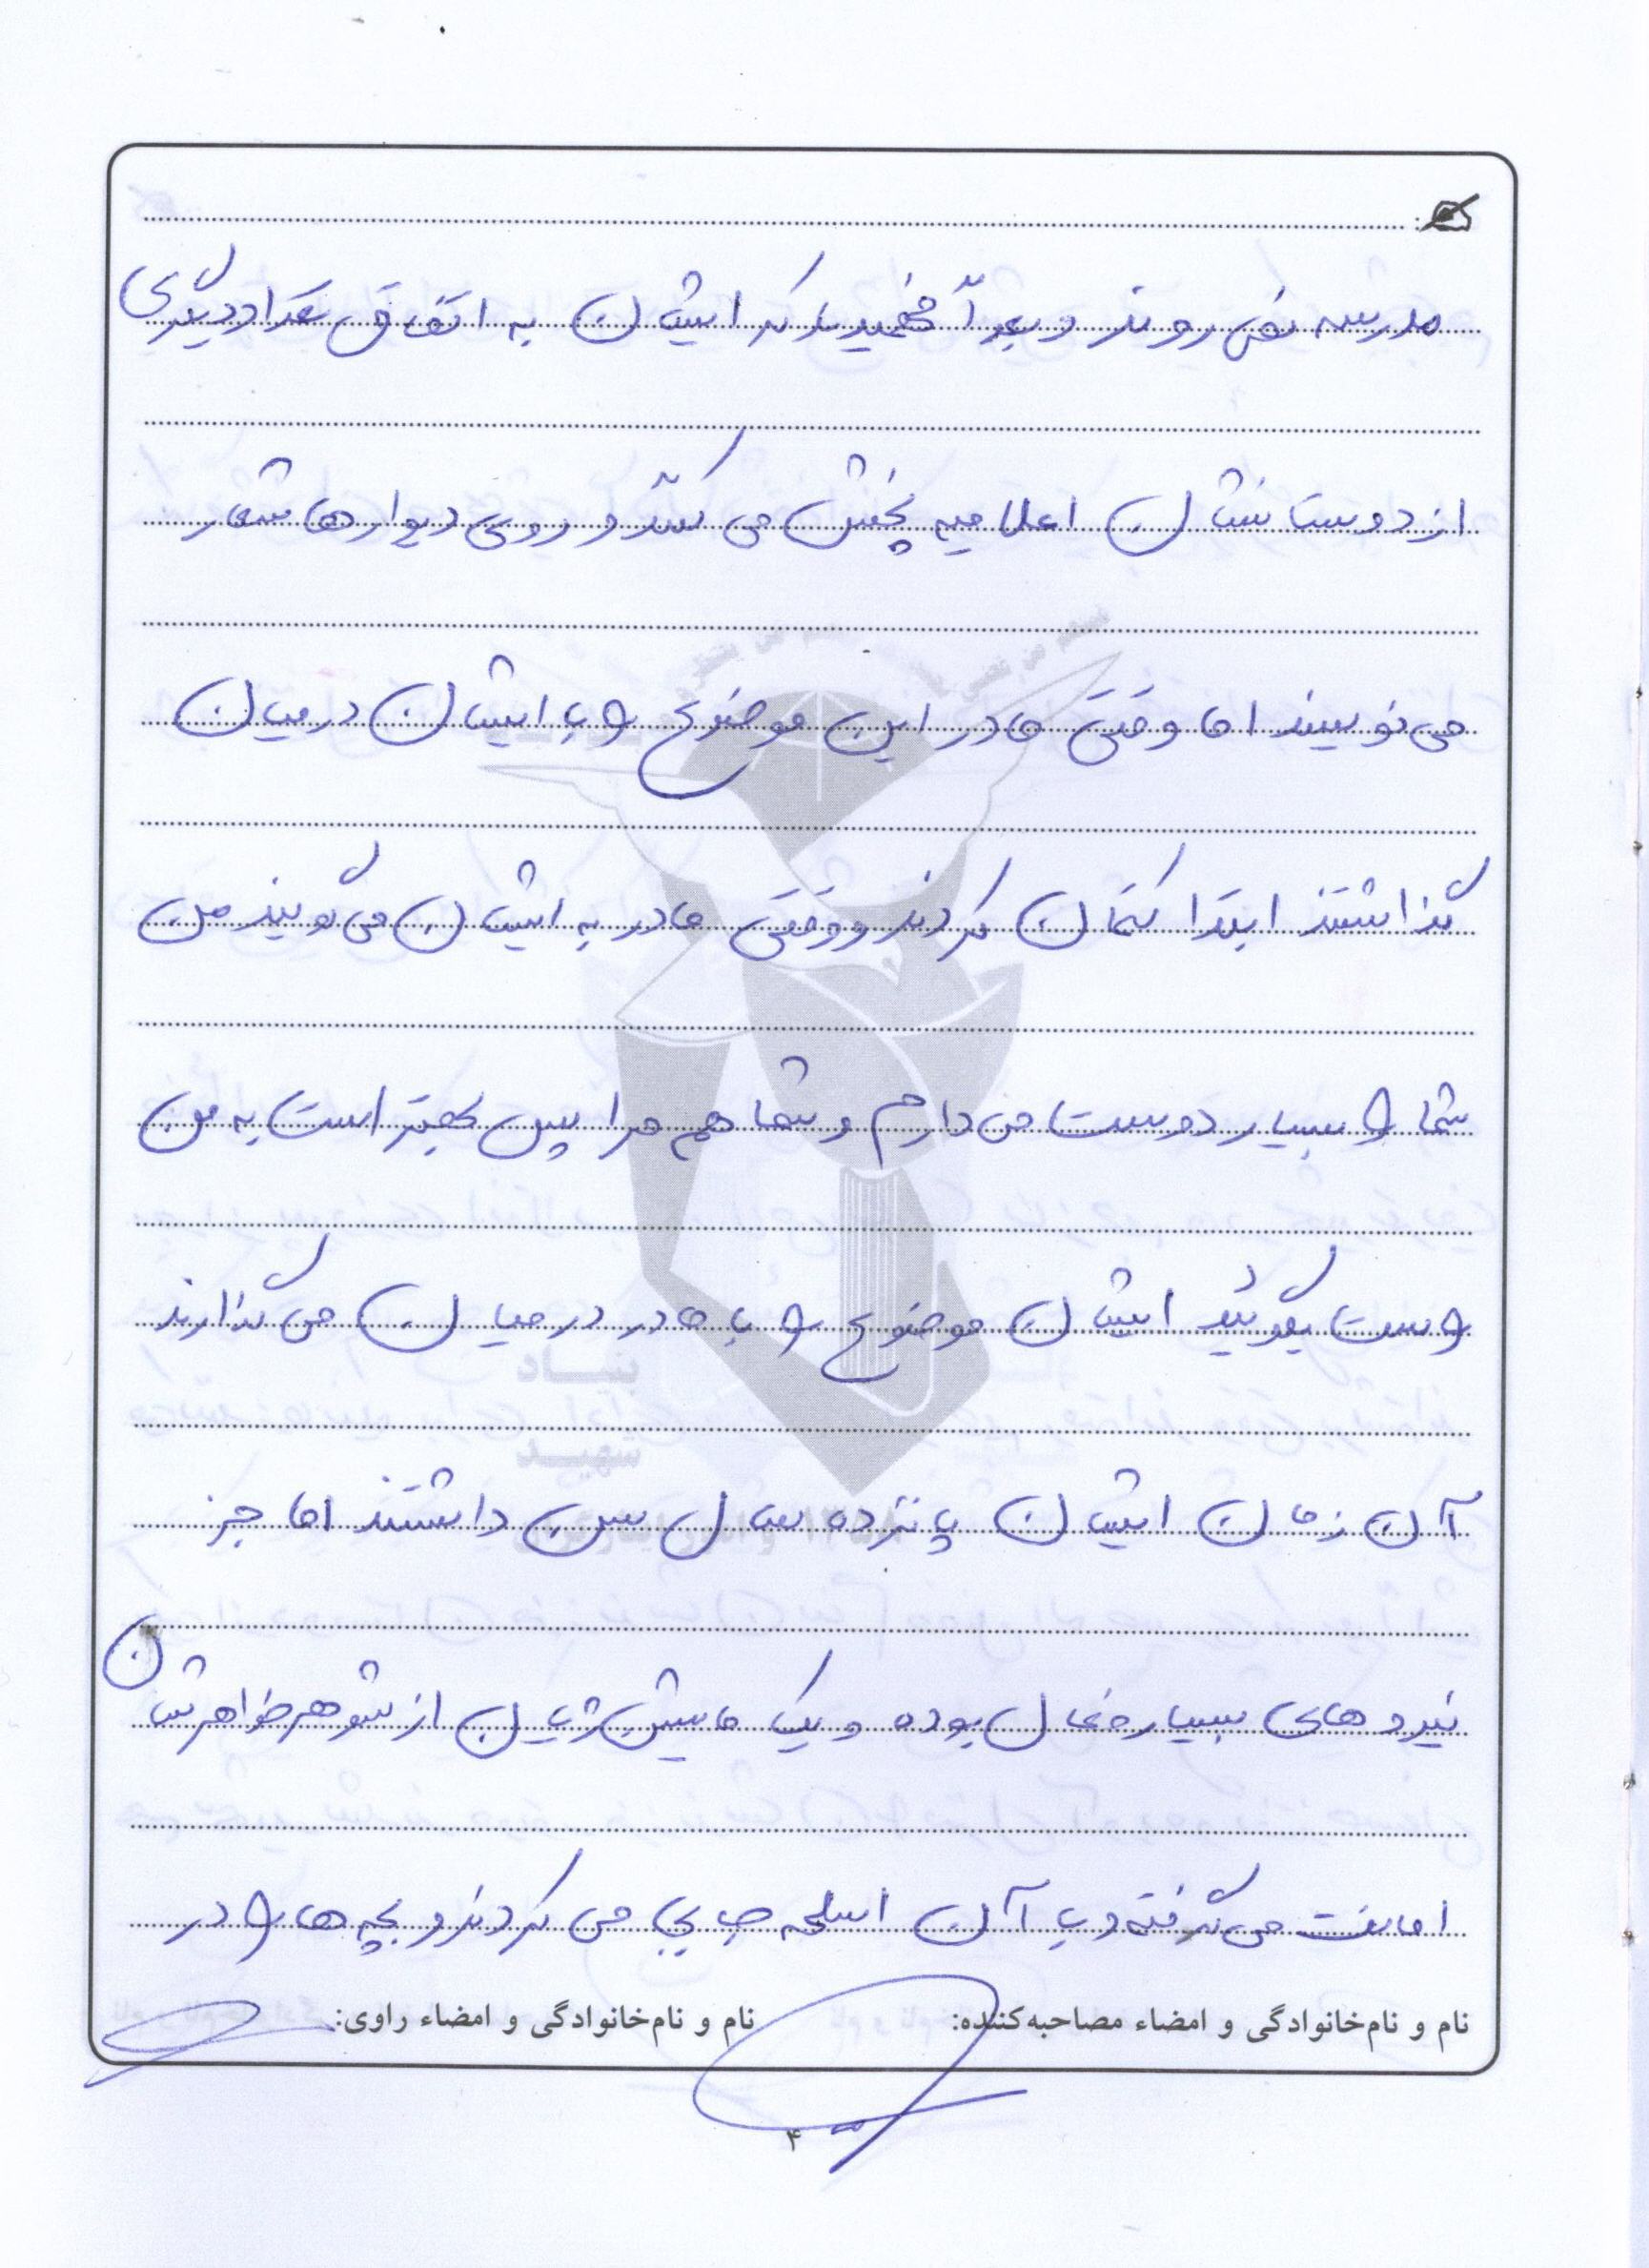 مدرسه نمی روند و بعداً فهمیدند که ایشان به اتفاق تعداد دیگری
از دوستانشان اعلامیه پخش می کنند و روی دیوارها شعار
می نویسند اما وقتی مادر این موضوع را با ایشان در میان
گذاشتند ابتدا کتمان کردند و وقتی مادر به ایشان می گویند من
شما را بسیار دوست می دارم و شما هم مرا پس بهتر است به من
راست بگوئید ایشان موضوع را با مادر در میان می گذارند
آن زمان ایشان پانزده سال سن داشتند اما جز
نیروهای بسیار فعال بوده و یک ماشین ژیان از شوهر خواهرشان
امانت می گرفته و با آن اسلحه جابجا می کردند و بچه ها را در
نام و نام‌خانوادگی و امضاء مصاحبه‌کننده: نام و نام‌خانوادگی و امضاء راوی:
۴